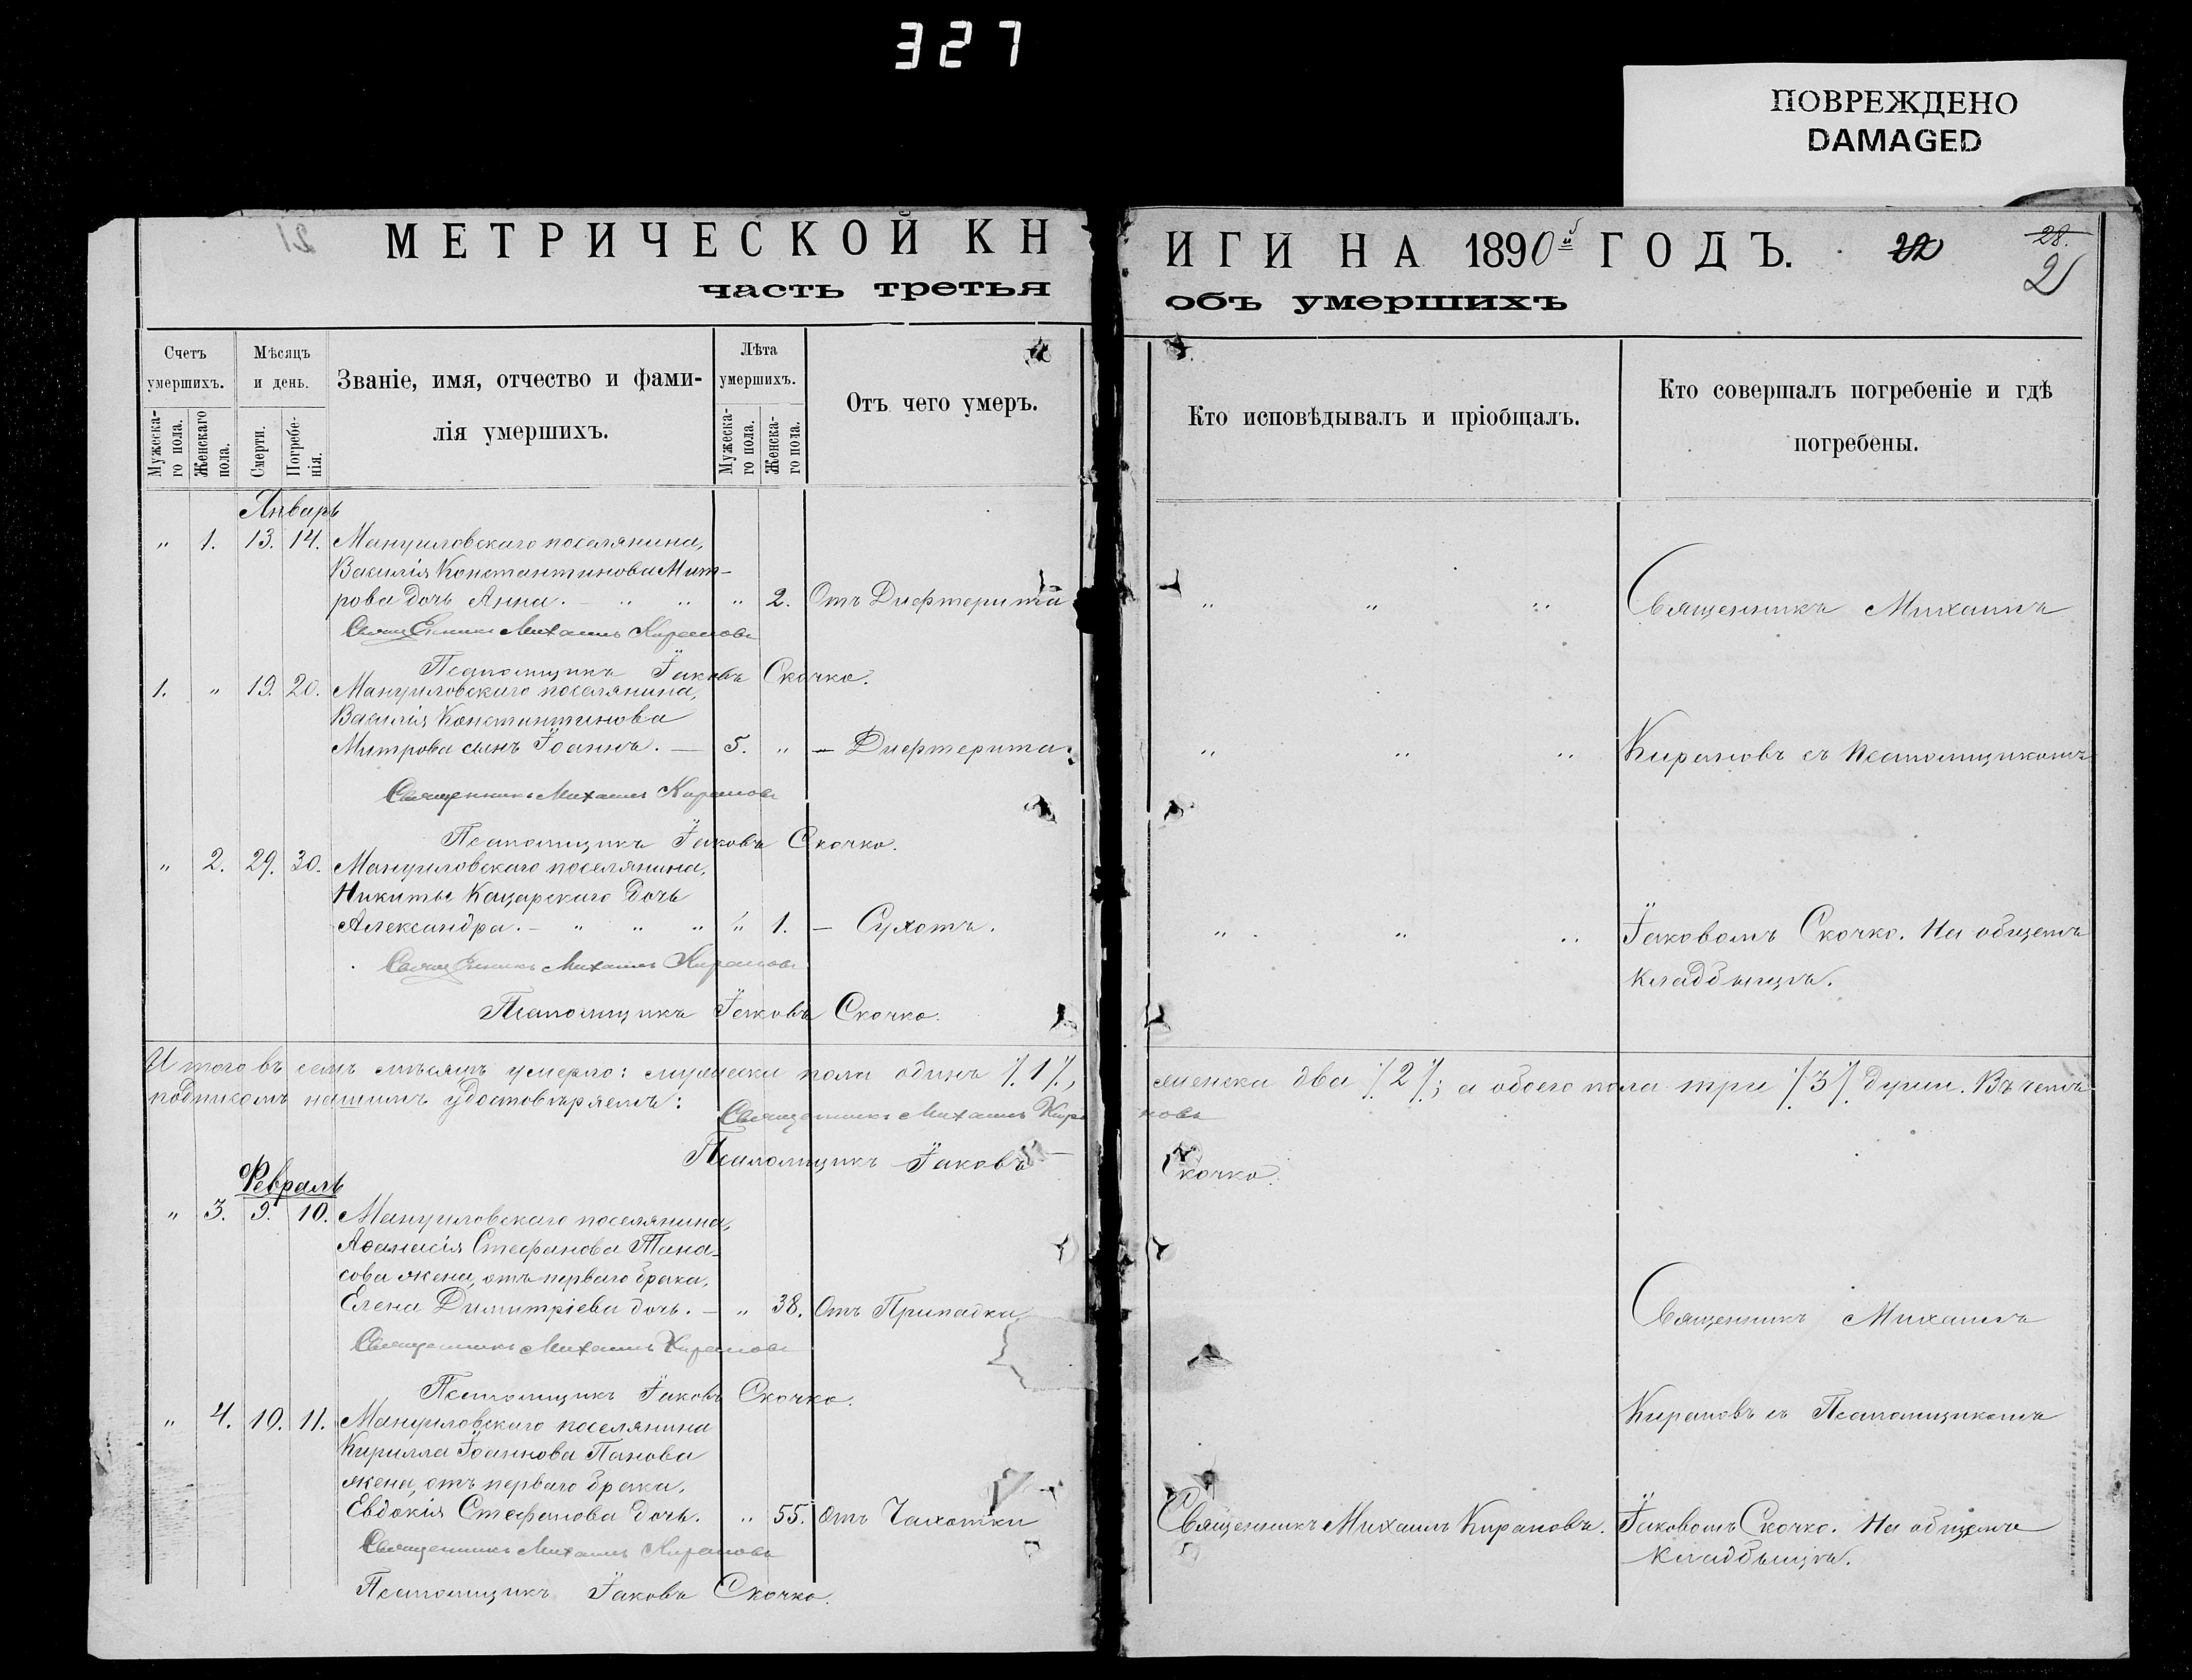 327
ПОВРЕЖДЕНО
DAMAGED
21
МЕТРИЧЕСКОЙ КНИГИ НА 1890й ГОДЪ.
22
28.
21
часть третья объ умершихъ
Счетъ умершихъ.
Мужеска-го пола.
Женскаго пола.
Мѣсяцъ и день.
Смерти.
Погребе-нія.
Званіе, имя, отчество и фами-
лія умершихъ.
Лѣта умершихъ.
Мужеска-го пола.
Женска-го пола.
Отъ чего умеръ.
Кто исповѣдывалъ и пріобщалъ.
Кто совершалъ погребеніе и гдѣ
погребены.
Январь
" 1. 13. 14. Мануиловскаго поселянина,
Василія Константинова Мит-
рова дочь Анна. — " " " 2. Отъ Дифтерита " " " Священникъ Михаилъ
Священникъ Михаилъ Кирановъ
Псаломщикъ Іаковъ Скочко.
1. " 19. 20. Мануиловскаго поселянина,
Василія Константинова
Митрова сынъ Іоаннъ. — 5. " — Дифтерита. " " " Кирановъ съ псаломщикомъ
Священникъ Михаилъ Кирановъ
Псаломщикъ Іаковъ Скочко.
" 2. 29. 30. Мануиловскаго поселянина,
Никиты Кацарскаго дочь
Александра. — " " " " 1. — Сухотъ. " " " Іаковомъ Скочко. На общемъ
кладбыщѣ.
Священникъ Михаилъ Кирановъ
Псаломщикъ Іаковъ Скочко.
Итого въ семъ мѣсяцѣ умерло: мужеска пола одинъ /.1/., женска два /.2/.; а обоего пола три /.3/. души. Въ чемъ
подписомъ нашимъ удостовѣряемъ:
Священникъ Михаилъ Кирановъ
Псаломщикъ Іаковъ Скочко.
Февраль
" 3. 9. 10. Мануиловскаго поселянина,
Аѳанасія Стефанова Тана-
сова жена, отъ перваго брака,
Елена Димитріева дочь. — " 38. Отъ Припадка Священникъ Михаилъ
Священникъ Михаилъ Кирановъ
Псаломщикъ Іаковъ Скочко.
Кирановъ съ Псаломщикомъ
" 4. 10. 11. Мануиловскаго поселянина
Кирилла Іоаннова Панова
жена, отъ перваго брака,
Евдокія Стефанова дочь. " 55. Отъ Чахотки Священникъ Михаилъ Кирановъ. Іаковомъ Скочко. На общемъ
кладбыщѣ.
Священникъ Михаилъ Кирановъ
Псаломщикъ Іаковъ Скочко.